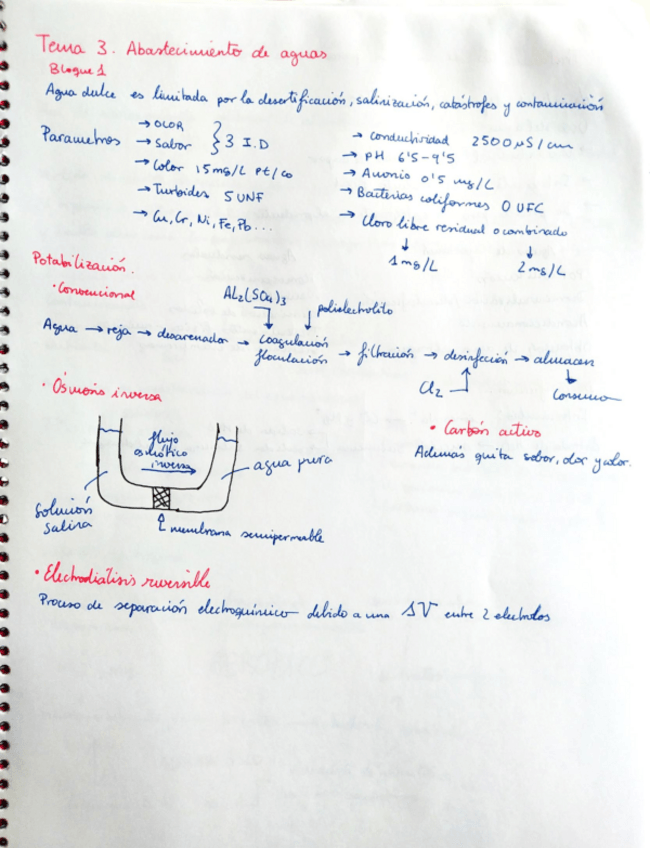 Tema 3. Abastecimiento de aguas
Bloque 1
Agua dulce es limitada por la desertificación, salinización, catástrofes y contaminación
Parametros
→ OLOR
→ Sabor } 3 I.D
→ Color 15mg/L Pt/Co
→ Turbidez 5 UNF
→ Cu, Cr, Ni, Fe, Pb...
→ Conductividad 2500 µS/cm
→ PH 6'5-9'5
→ Amonio 0'5 mg/L
→ Bacterias coliformes 0 UFC
→ Cloro libre residual o combinado
↓ ↓
1mg/L 2mg/L
Potabilización.
· Convencional
AL2(SO4)3
polielectrolito
Agua → reja → desarenador → coagulación floculación → filtración → desinfección → almacen
Cl2
Consumo
· Ósmosis inversa
flujo
osmótico
inversa
agua pura
Solución
Salina
membrana semipermeable
· Carbón activo
Además quita sabor, olor y color.
· Electrodialisis reversible
Proceso de separación electroquímico debido a una ΔV entre 2 electrodos